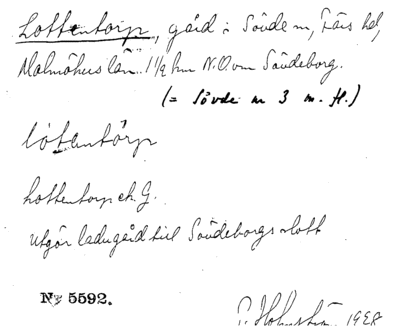 Lottentorp, gård i Sövde sn, Färs hd,
Malmöhus län. 1 1/2 km N.O. om Sövdeborg.
(= Sövde nr 3 m. fl.)
lòtentörp
Lottentorp ek. G.
Utgör ladugård till Sövdeborgs slott
Nº 5592.
1928